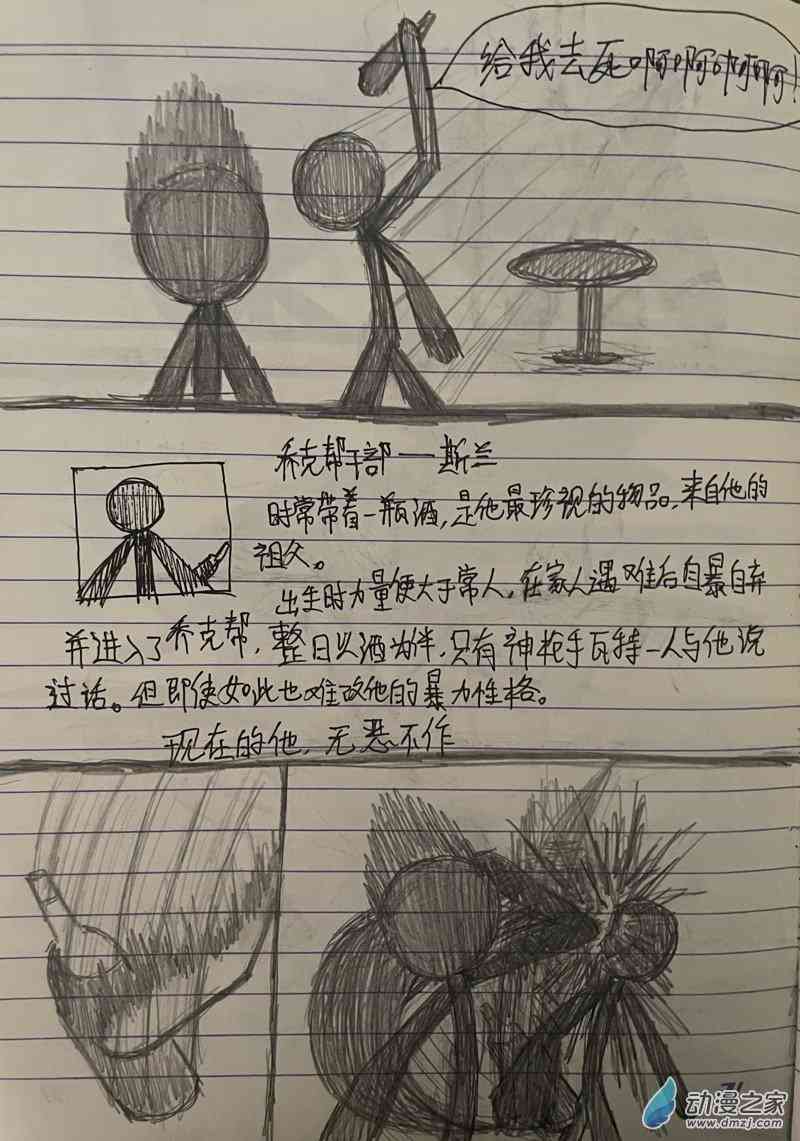 给我去死啊啊啊啊!
乔克帮干部一斯兰
时常带着一瓶酒,是他最珍视的物品。来自他的
祖父。
出生时力量便大于常人,在家人遇难后自暴自弃
并进入了乔克帮,整日以酒为伴,只有神枪手瓦特一人与他说
过话。但即使如此也难改他的暴力性格。
现在的他,无恶不作
动漫之家
www.dmzj.com